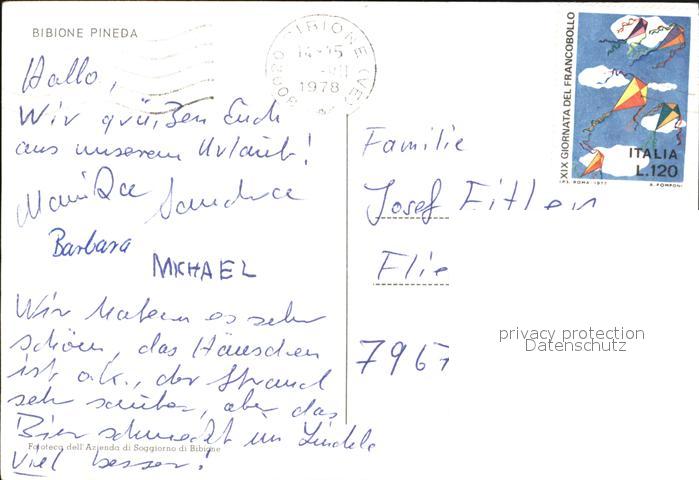 BIBIONE PINEDA
Hallo,
Wir grüßen Euch
aus unserem Urlaub!
Monika Sandra
Barbara
MICHAEL
Wir haben es sehr
schön, das Häuschen
ist o.k., der Strand
sehr sauber, aber das
Bier schmeckt im Lindele
viel besser!
Fototeca dell'Azienda di Soggiorno di Bibione
30020 BIBIONE (VE)
14-15
1978
XIX GIORNATA DEL FRANCOBOLLO
ITALIA
L.120
I.P.S. ROMA 1977 A. POMPONI
Familie
Josef
Flie
7967
privacy protection
Datenschutz